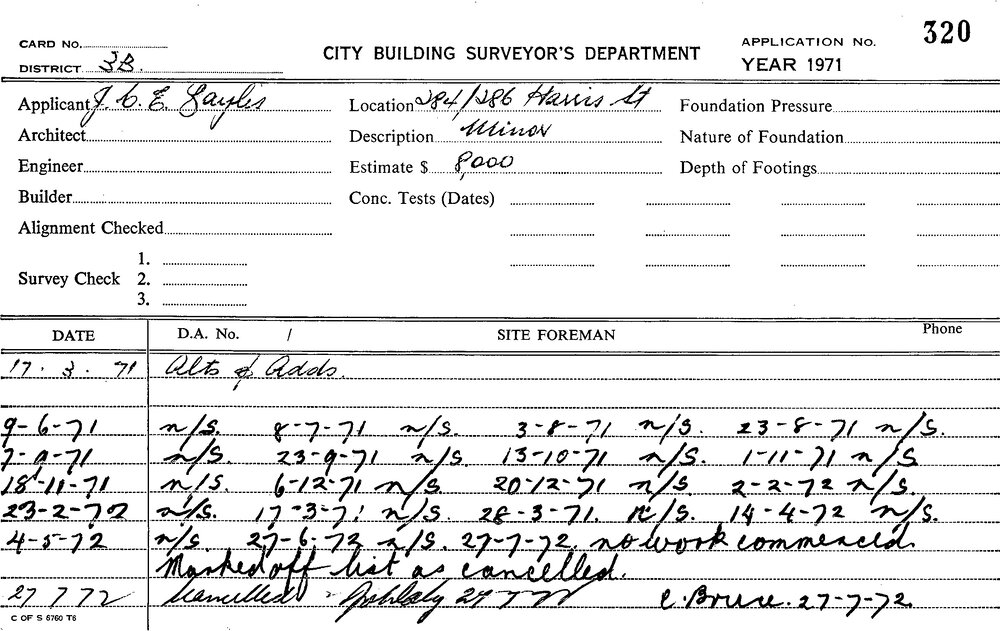 320
CARD No.
DISTRICT 3B.
CITY BUILDING SURVEYOR'S DEPARTMENT
APPLICATION No.
YEAR 1971
Applicant J. C. E. Location 284/286 Harris St Foundation Pressure
Architect Description Minor Nature of Foundation
Engineer Estimate $ 8,000 Depth of Footings
Builder Conc. Tests (Dates)
Alignment Checked
1.
Survey Check 2.
3.
DATE D.A. No. / SITE FOREMAN Phone
17. 3. 71 Alts & Adds.
9-6-71 n/s. 8-7-71 n/s. 3-8-71 n/s. 23-8-71 n/s.
7-9-71 n/s. 23-9-71 n/s. 13-10-71 n/s. 1-11-71 n/s
18-11-71 n/s. 6-12-71 n/s. 20-12-71 n/s. 2-2-72 n/s.
23-2-72 n/s. 17-3-71 n/s. 28-3-71. n/s. 14-4-72 n/s.
4-5-72 n/s. 27-6-72 n/s. 27-7-72. no work commenced.
Marked off list as cancelled.
27 7 72 Cancelled - 27 7 72 C. Bruse. 27-7-72.
C OF S 6760 T6